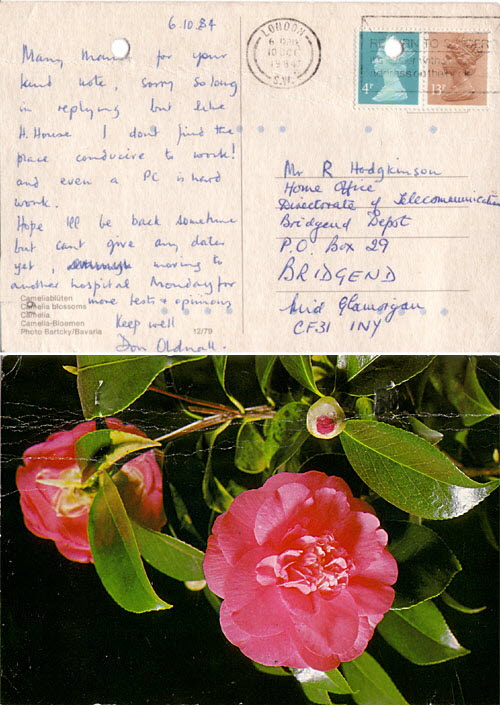 6.10.84
Many thanks for your
kind note, sorry so long
in replying but like
H. House I don't find the
place conducive to work!
and even a PC is hard
work.
Hope I'll be back sometime
but can't give any dates
yet, moving to
another hospital Monday for
more tests & opinions
Keep well
Don Oldnall.
Camelia blüten
Camelia blossoms
Camelia
Camelia-Bloemen
Photo Bartcky/Bavaria
12/79
LONDON
10 OCT
1984
S.W.
RETURN TO SENDER
4P
13P
Mr R Hodgkinson
Home Office
Directorate of Telecommunication
Bridgend Depot
P.O. Box 29
BRIDGEND
Mid Glamorgan
CF31 1NY